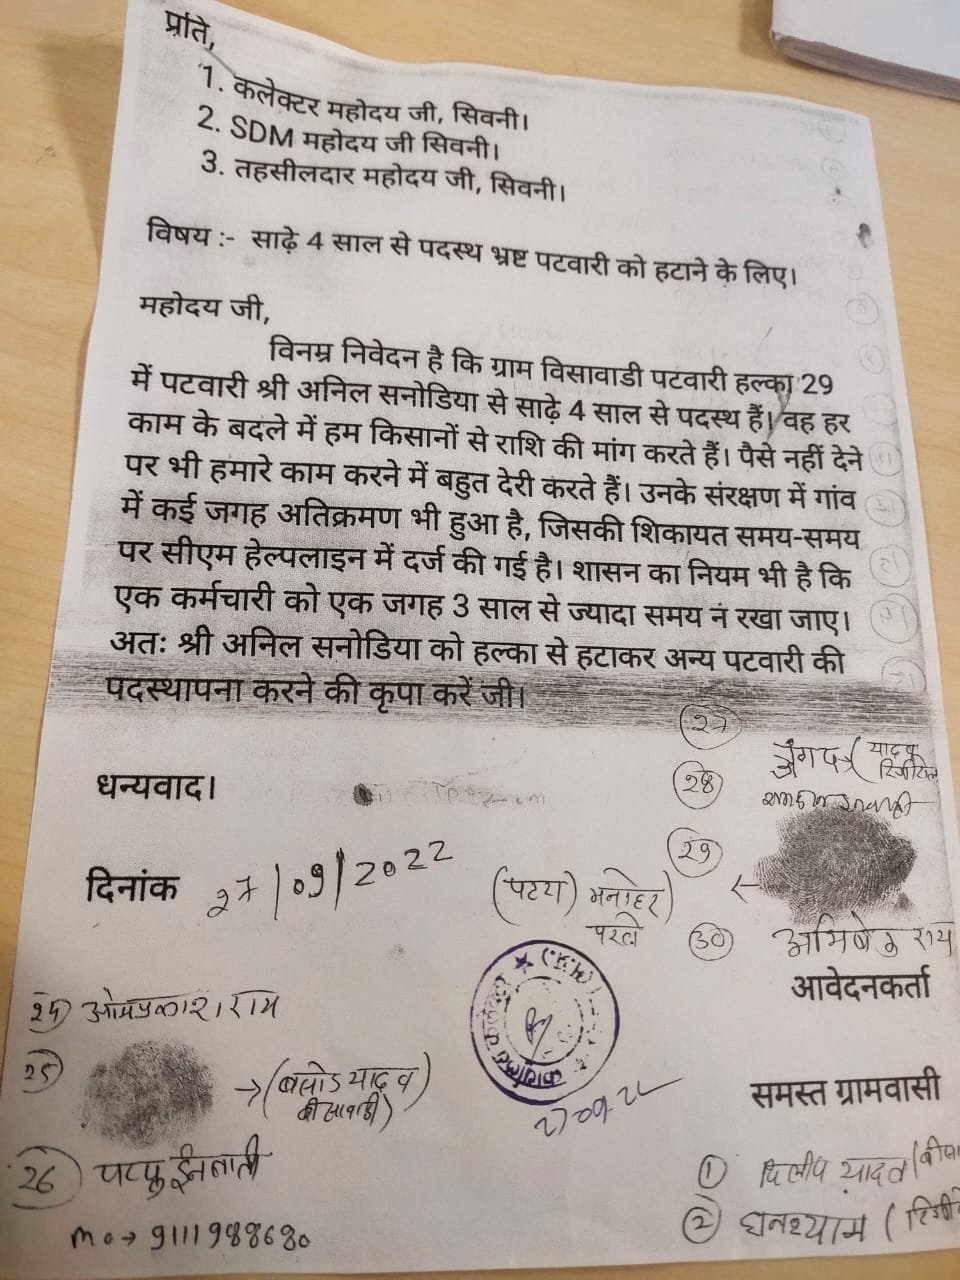 प्रति,
1. कलेक्टर महोदय जी, सिवनी।
2. SDM महोदय जी सिवनी।
3. तहसीलदार महोदय जी, सिवनी।
विषय :- साढ़े 4 साल से पदस्थ भ्रष्ट पटवारी को हटाने के लिए।
महोदय जी,
विनम्र निवेदन है कि ग्राम विसावाडी पटवारी हल्का 29
में पटवारी श्री अनिल सनोडिया से साढ़े 4 साल से पदस्थ हैं। वह हर
काम के बदले में हम किसानों से राशि की मांग करते हैं। पैसे नहीं देने
पर भी हमारे काम करने में बहुत देरी करते हैं। उनके संरक्षण में गांव
में कई जगह अतिक्रमण भी हुआ है, जिसकी शिकायत समय-समय
पर सीएम हेल्पलाइन में दर्ज की गई है। शासन का नियम भी है कि
एक कर्मचारी को एक जगह 3 साल से ज्यादा समय न रखा जाए।
अतः श्री अनिल सनोडिया को हल्का से हटाकर अन्य पटवारी की
पदस्थापना करने की कृपा करें जी।
27
28
धन्यवाद।
29
दिनांक 27/09/2022
(पटय) मनोहर
30 अभिषेक राय
आवेदनकर्ता
24 ओमप्रकाश राय
25 → (बसोड यादव
बीसावाडी)
27-09-22
समस्त ग्रामवासी
26
1 दिलीप यादव
mo → 9111988680
2 घनश्याम